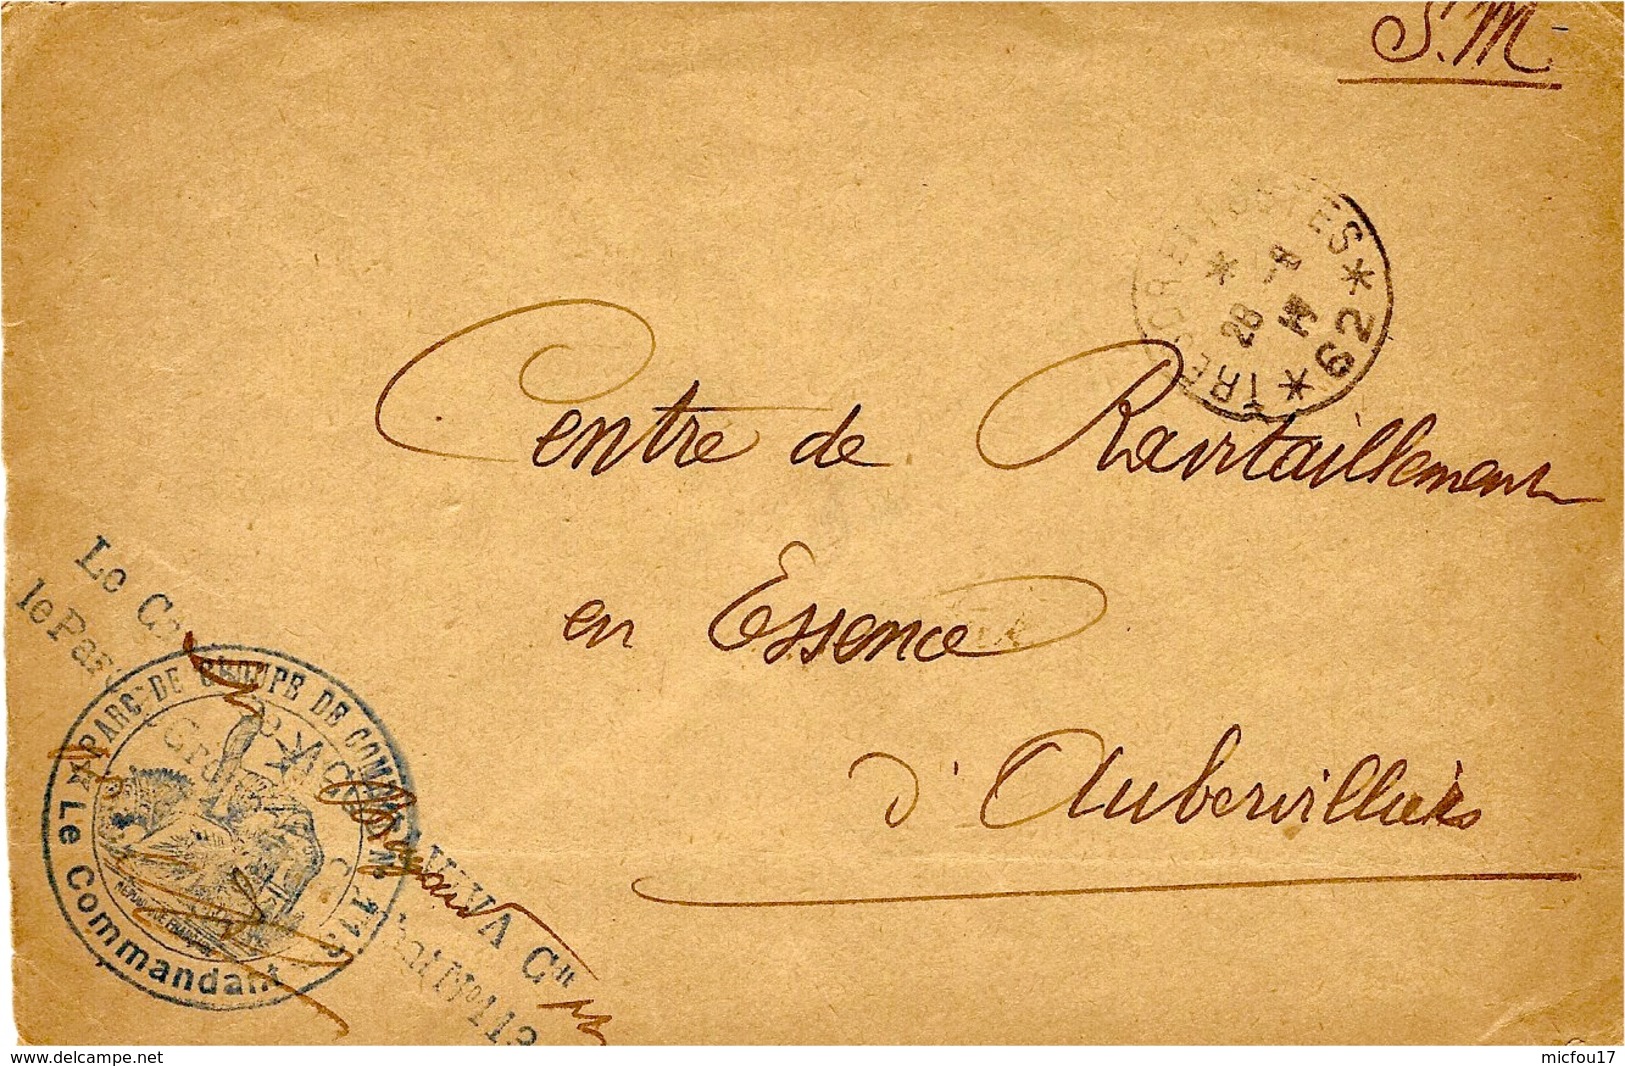 S.M.
TRESOR ET POSTES
* 62 *
28 -8
Centre de Ravitaillement
en Essence
d'Aubervilliers
Le
le Parc
PARC DE GROUPE DE COMBAT N° 113
Le Commandant
REPUBLIQUE FRANÇAISE
Cie
N°113
www.delcampe.net
micfou17